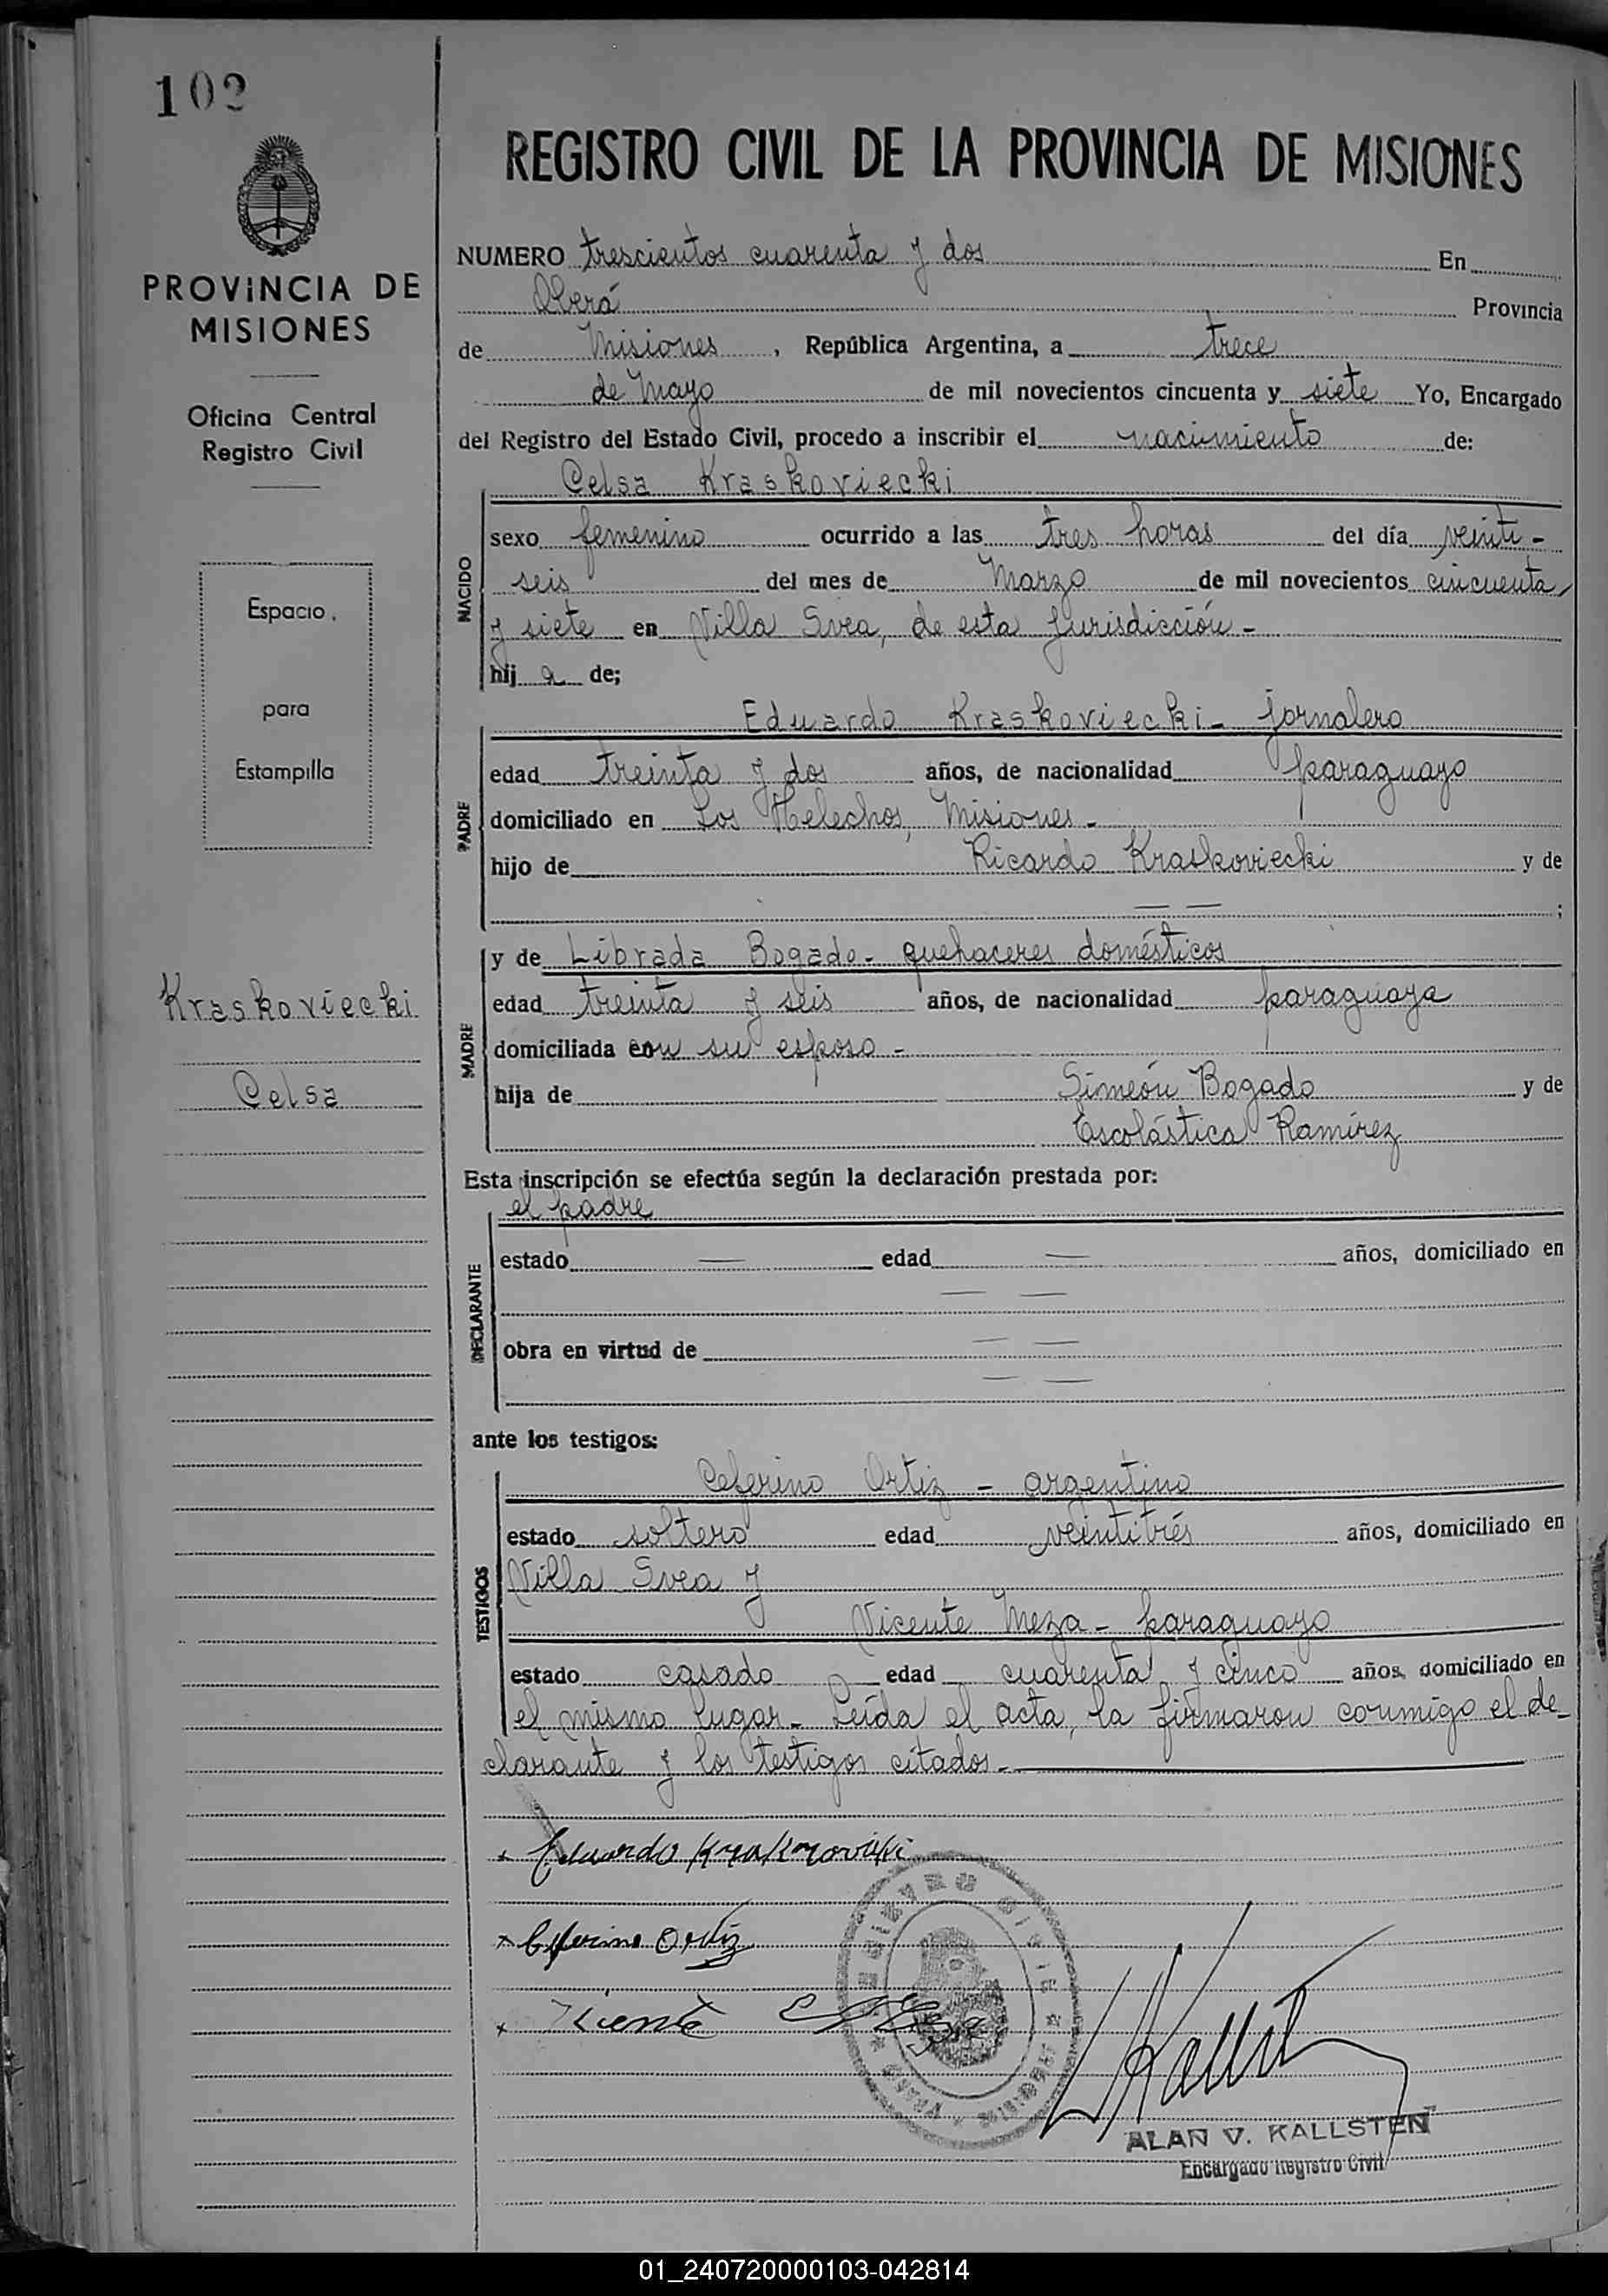 102
REGISTRO CIVIL DE LA PROVINCIA DE MISIONES
PROVINCIA DE
MISIONES
Oficina Central
Registro Civil
Espacio
para
Estampilla
Kraskoviecki
Celsa
NUMERO trescientos cuarenta y dos En
Oberá Provincia
de Misiones, República Argentina, a trece
de Mayo de mil novecientos cincuenta y siete Yo, Encargado
del Registro del Estado Civil, procedo a inscribir el nacimiento de:
Celsa Kraskoviecki
NACIDO
sexo femenino ocurrido a las tres horas del día veinti-
seis del mes de Marzo de mil novecientos cincuenta
y siete en Villa Svea, de esta jurisdicción-
hij a de;
PADRE
Eduardo Kraskoviecki- jornalero
edad treinta y dos años, de nacionalidad paraguayo
domiciliado en Los Helechos, Misiones-
hijo de Ricardo Kraskoviecki y de
— — ;
MADRE
y de Librada Bogado- quehaceres domésticos
edad treinta y seis años, de nacionalidad paraguaya
domiciliada con su esposo-
hija de Simeón Bogado y de
Escolástica Ramírez
Esta inscripción se efectúa según la declaración prestada por:
el padre
DECLARANTE
estado — edad — años, domiciliado en
— —
obra en virtud de — —
— —
ante los testigos:
TESTIGOS
Ceferino Ortiz - argentino
estado soltero edad veintitrés años, domiciliado en
Villa Svea y
Vicente Meza- paraguayo
estado casado edad cuarenta y cinco años, domiciliado en
el mismo lugar- Leída el acta, la firmaron conmigo el de-
clarante y los testigos citados.-
Eduardo
Ceferino Ortiz
REGISTRO CIVIL
ALAN V. KALLSTEN
Encargado Registro Civil
01_240720000103-042814